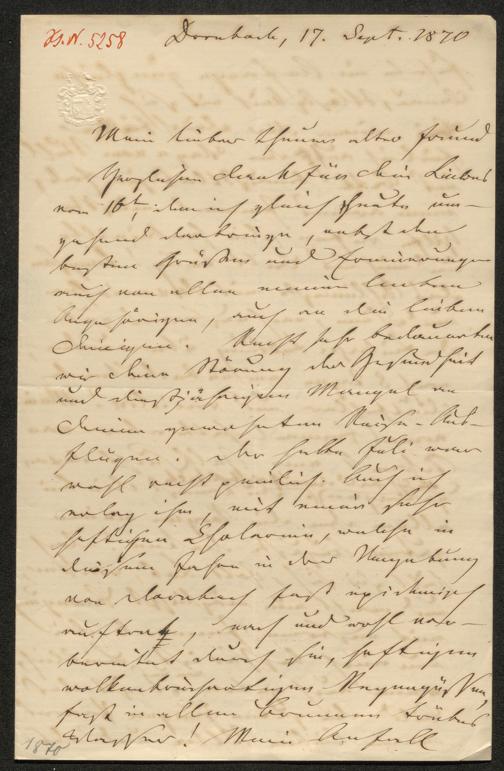 H.N. 5258
Dornbach, 17. Sept. 1870
Mein lieber theurer alter Freund
Herzlichen Dank für Dein Liebes
vom 16t, den ich gleich heute um-
gehend darbringe, nebst den
besten Grüßen und Erinnerungen
auch von allen meinen lieben
Angehörigen, auch an die lieben
Deinigen. Recht sehr bedauerten
wir Deine Störung der Gesundheit
und dießjährigen Mangel an
Deinen gewohnten Reise-Aus-
flügen. Der halbe Juli war
wohl recht peinlich. Auch ich
erlag ihm, mit einer sehr
heftigen Cholerine, welche in
diesem Jahre in der Umgebung
von Dornbach fast epidemisch
auftrat, nach und wohl vor-
bereitet durch die heftigen
wolkenbruchartigen Regengüssen,
fast in allen Brunnen trübes
Wasser! Mein Anfall
1870